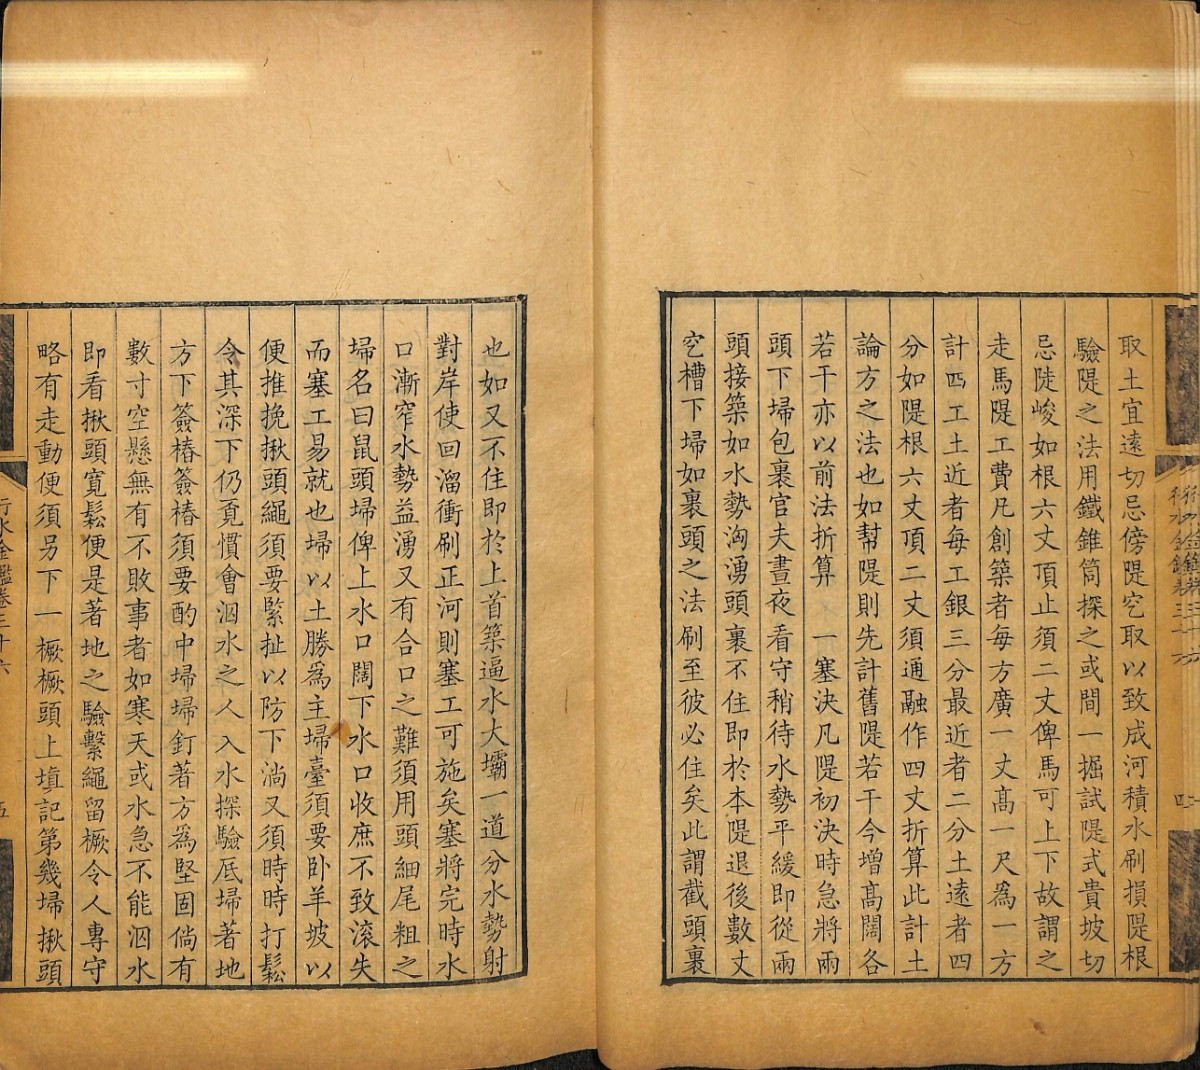 取土宜遠切忌傍隄穵取以致成河積水刷損隄根
驗隄之法用鐵錐筒探之或間一掘試隄式貴坡切
忌陡峻如根六丈頂止須二丈俾馬可上下故謂之
走馬隄工費凡創築者每方廣一丈高一尺為一方
計四工土近者每工銀三分最近者二分土遠者四
分如隄根六丈頂二丈須通融作四丈折算此計土
論方之法也如幫隄則先計舊隄若干今增高闊各
若干亦以前法折算 一塞決凡隄初決時急將兩
頭下埽包裹官夫晝夜看守稍待水勢平緩即從兩
頭接築如水勢洶湧頭裹不住即於本隄退後數丈
穵槽下埽如裹頭之法刷至彼必住矣此謂截頭裹
也如又不住即於上首築逼水大壩一道分水勢射
對岸使回溜衝刷正河則塞工可施矣塞將完時水
口漸窄水勢益湧又有合口之難須用頭細尾粗之
埽名曰鼠頭埽俾上水口闊下水口收庶不致滾失
而塞工易就也埽以土勝為主埽臺須要卧羊坡以
便推挽揪頭繩須要緊扯以防下淌又須時時打鬆
令其深下仍覓慣會泅水之人入水探驗底埽著地
方下簽樁簽樁須要酌中埽埽釘著方為堅固倘有
數寸空懸無有不敗事者如寒天或水急不能泅水
即看揪頭寬鬆便是著地之驗繫繩留橛令人專守
略有走動便須另下一橛橛頭上填記第幾埽揪頭
行水金鑑卷三十六
五